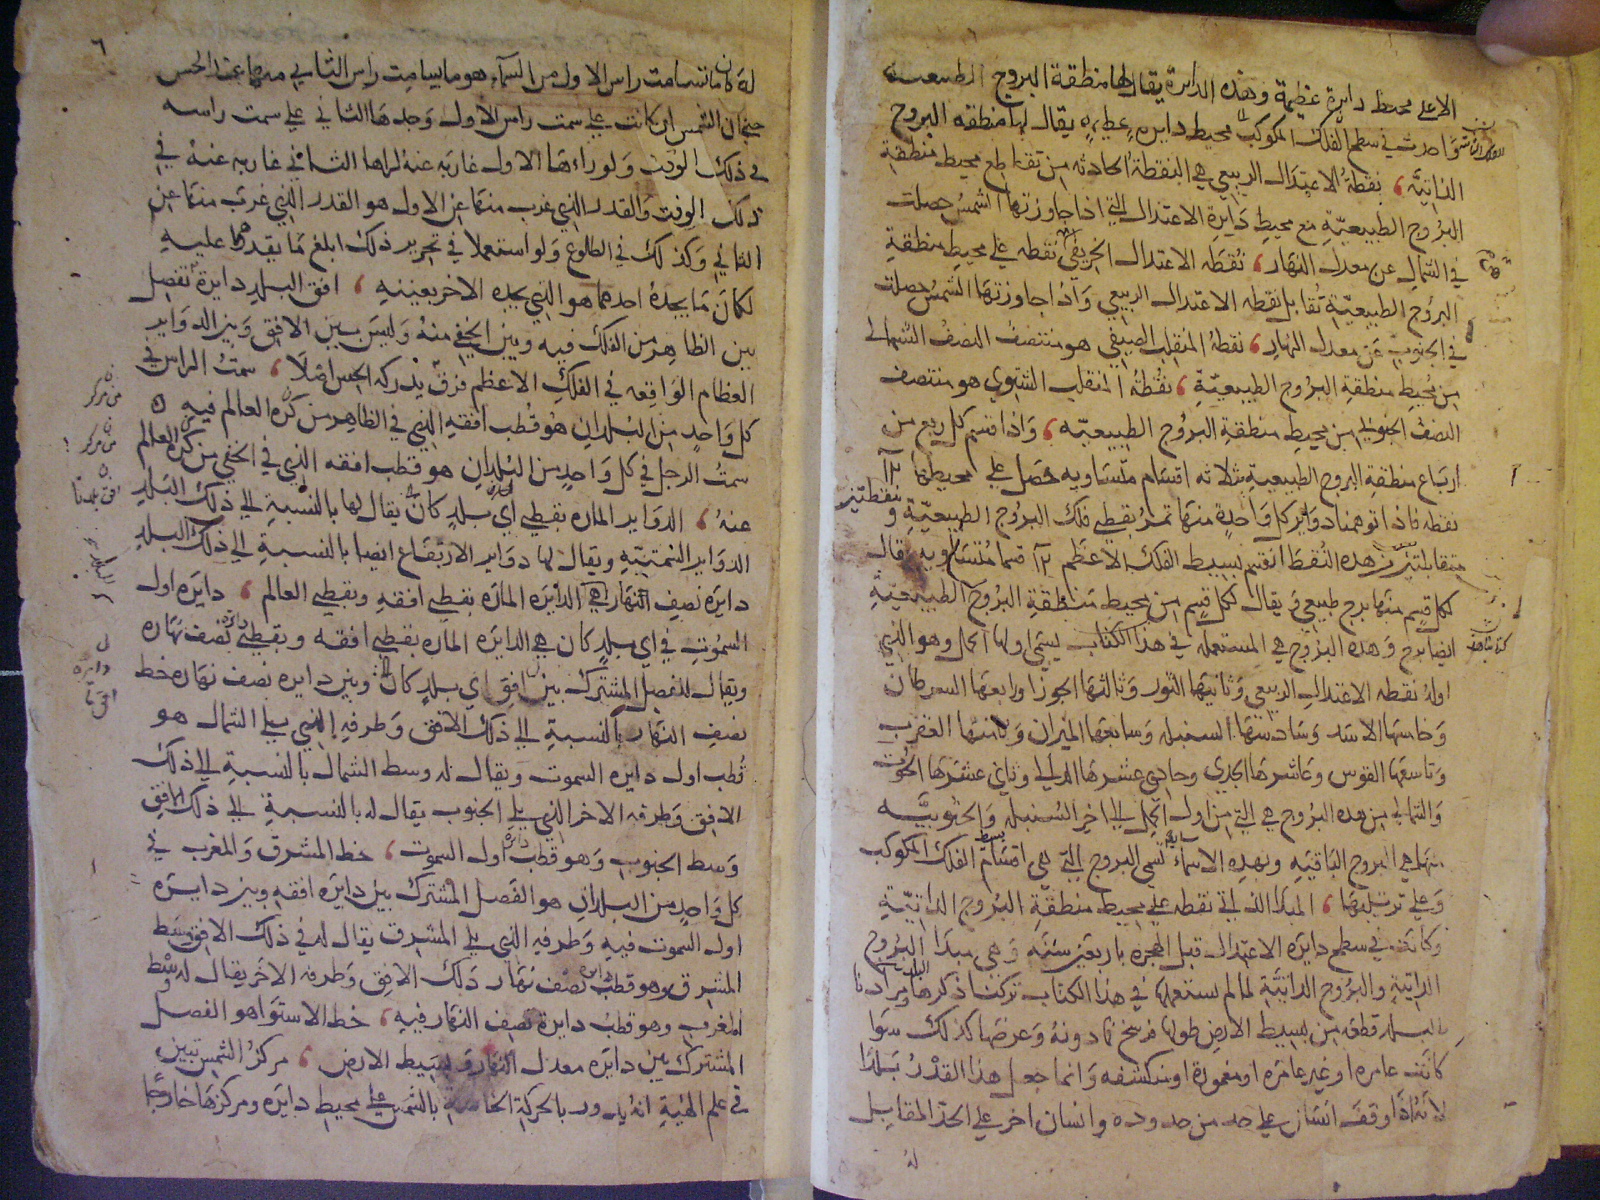 الاعلى محيط دايرة عظيمة وهذه الدايرة يقال لها منطقة البروج الطبيعية
واحدث في سطح الفلك المكوكب محيط دايره عظيمه يقال لها منطقه البروج
الذاتية، نقطة الاعتدال الربيعي هي النقطة الحادثه من تقاطع محيط منطقة
البروج الطبيعية مع محيط دايرة الاعتدال التي اذا جاوزتها الشمس حصلت
في الشمال عن معدل النهار، نقطه الاعتدال الخريفي نقطه على محيط منطقة
البروج الطبيعية تقابل نقطه الاعتدال الربيعي واذا جاوزتها الشمس حصلت
في الجنوب عن معدل النهار، نقطة المنقلب الصيفي هو منتصف النصف الشمالي
من محيط منطقة البروج الطبيعية، نقطة المنقلب الشتوي هو منتصف
النصف الجنوبي من محيط منطقة البروج الطبيعيه، واذا قسم كل ربع من
ارباع منطقة البروج الطبيعية بثلاثه اقسام متساويه حصل على محيطها ١٢
نقطه فاذا توهمنا دواير كل واحدة منها تمر بقطبي فلك البروج الطبيعية وبنقطتين
متقابلتين من هذه النقط انقسم بسيط الفلك الاعظم ١٢ قسما متساويه يقال
لكل قسم منها برج طبيعي يقال لكل قسم من محيط منطقة البروج الطبيعية
ايضا برج وهذه البروج هي المستعمله في هذا الكتاب يسمى اولها الحمل وهو الذي
اوله نقطه الاعتدال الربيعي وثانيها الثور وثالثها الجوزا ورابعها السرطان
وخامسها الاسد وسادسها السنبله وسابعها الميزان وثامنها العقرب
وتاسعها القوس وعاشرها الجدي وحادي عشرها الدلو وثاني عشرها الحوت
والشمالي من هذه البروج هي التي من اول الحمل الى اخر السنبله والجنوبيه
منها هي البروج الباقيه وبهذه الاسماء تسمى البروج التي هي اقسام الفلك المكوكب
وعلى ترتيبها، المبدا الذاتي نقطه على محيط منطقة البروج الذاتية
وكانت في سطح دايره الاعتدال قبل الهجره باربعين سنه وهي مبدا البروج
الذاتية والبروج الذاتية لما لم نستعملها في هذا الكتاب تركنا ذكرها ومرادنا
بالبلد قطعه من بسيط الارض طولها فرسخ فما دونه وعرضها كذلك سوا
كانت عامره او غير عامره او مغمورة او منكشفه وانما جعل هذا القدر بلدا
لانه اذا وقف انسان على حد من حدوده وانسان اخر على الحد المقابل
له
له كان ما تسامت راس الاول من السماء هو ما يسامت راس الثاني منها عند الحس
حتى ان الشمس ان كانت على سمت راس الاول وجدها الثاني على سمت راسه
في ذلك الوقت ولو راءها الاول غاربه عنه لراها الثاني غاربه عنه في
ذلك الوقت والقدر الذي غرب منها عن الاول هو القدر الذي غرب منها عن
الثاني وكذلك في الطلوع ولو استعملا في تحرير ذلك ابلغ ما يقدرها عليه
لكان ما يجده احدهما هو الذي يجده الاخر بعينه، افق البلد دايرة تفصل
بين الظاهر من الفلك فيه وبين الخفي منه وليس بين الافق وبين الدواير
العظام الواقعه في الفلك الاعظم فرق يدركه الحس اصلا، سمت الراس في
كل واحد من البلدان هو قطب افقه الذي في الظاهر من كرة العالم فيه
سمت الرجل في كل واحد من البلدان هو قطب افقه الذي في الخفي من كرة العالم
عنه، الدواير الماره بقطبي افق اي بلد كان يقال لها بالنسبة الى ذلك البلد
الدواير السمتيه ويقال لها دواير الارتفاع ايضا بالنسبة الى ذلك البلد
دايره نصف النهار هي الدايره الماره بقطبي افقه وبقطبي العالم، دايره اول
السموت في اي بلد كان هي الدايره الماره بقطبي افقه وبقطبي دايرة نصف نهاره
ويقال للفصل المشترك بين افق اي بلد كان وبين دايره نصف نهاره خط
نصف النهار بالنسبة الى ذلك الافق وطرفه الذي يلي الشمال هو
قطب اول دايره السموت ويقال له وسط الشمال بالنسبة الى ذلك
الافق وطرفه الاخر الذي يلي الجنوب يقال له بالنسبة الى ذلك الافق
وسط الجنوب وهو قطب دايرة اول السموت، خط المشرق والمغرب في
كل واحد من البلدان هو الفصل المشترك بين دايره افقه وبين دايره
اول السموت فيه وطرفه الذي يلي المشرق يقال له في ذلك الافق وسط
المشرق وهو قطب دايرة نصف نهار ذلك الافق وطرفه الاخر يقال له وسط
المغرب وهو قطب دايرة نصف النهار فيه، خط الاستوا هو الفصل
المشترك بين دايره معدل النهار وبسيط الارض، مركز الشمس تبين
في علم الهيئة انه يدور بالحركة الخاصة بالشمس على محيط دايره ومركزها خارجا